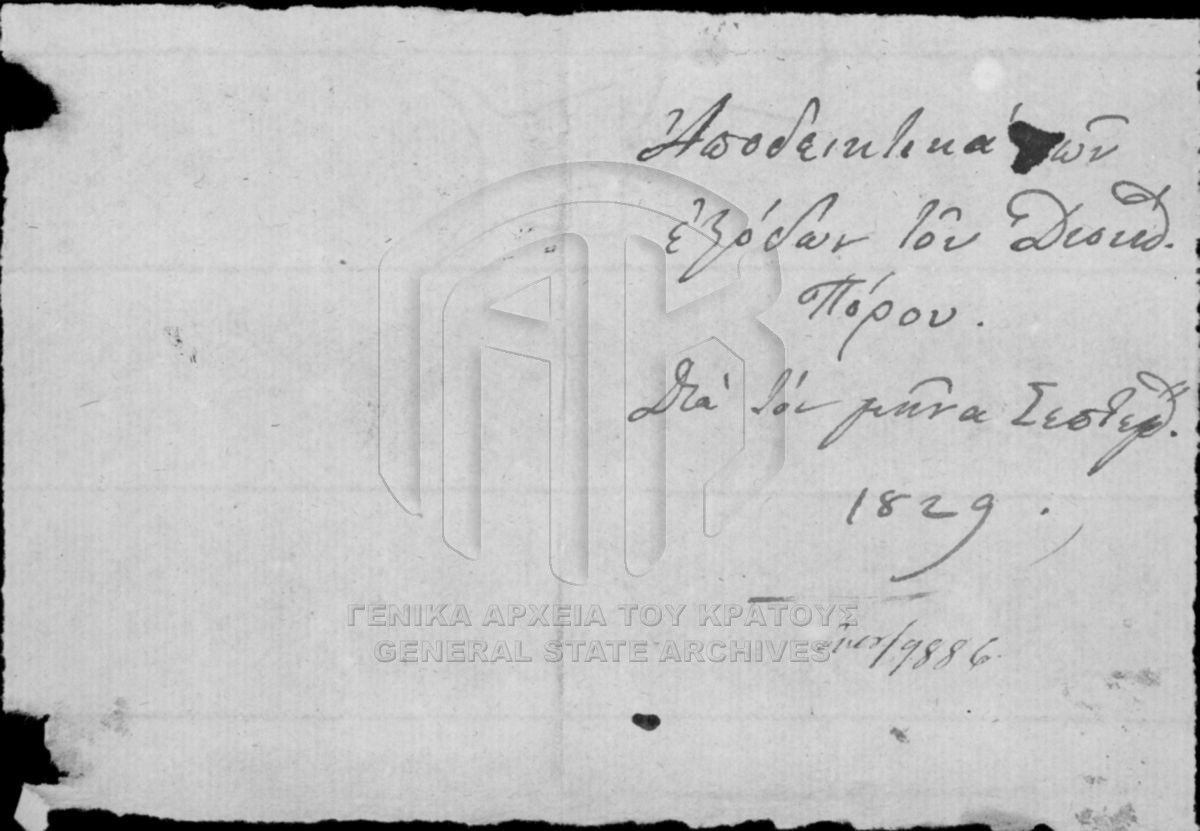 Ἀποδεικτικά τῶν
ἐξόδων τοῦ Διοικ.
Πόρου.
Διὰ τόν μῆνα Σεπτεμ.
1829.
9886
ΓΕΝΙΚΑ ΑΡΧΕΙΑ ΤΟΥ ΚΡΑΤΟΥΣ
GENERAL STATE ARCHIVES